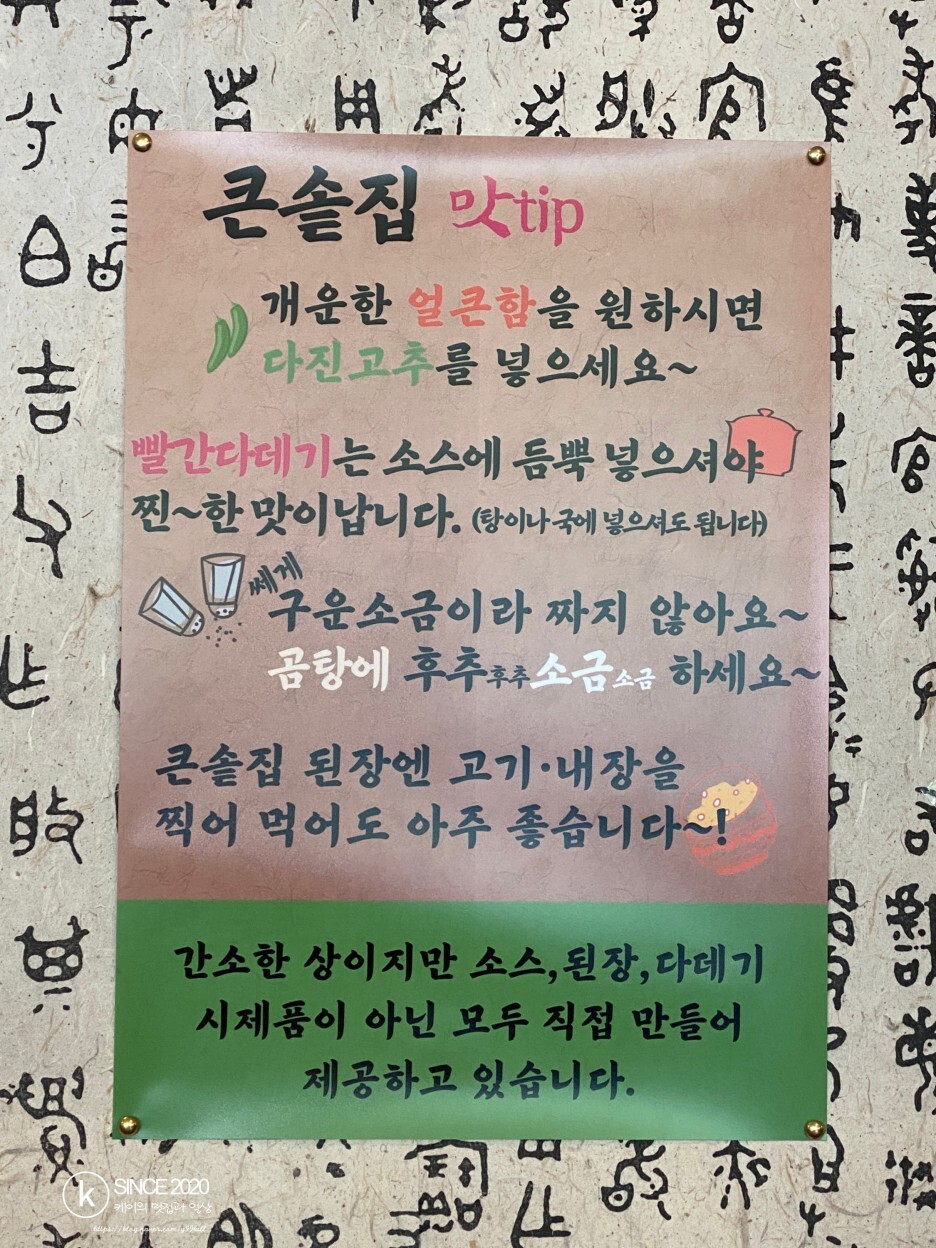 큰솥집 맛tip
개운한 얼큰함을 원하시면
다진고추를 넣으세요~
빨간다데기는 소스에 듬뿍 넣으셔야
찐~한 맛이납니다. (탕이나 국에 넣으셔도 됩니다)
쎄게
구운소금이라 짜지 않아요~
곰탕에 후추후추소금소금 하세요~
큰솥집 된장엔 고기·내장을
찍어 먹어도 아주 좋습니다~!
간소한 상이지만 소스,된장,다데기
시제품이 아닌 모두 직접 만들어
제공하고 있습니다.
k SINCE 2020
케이의 맛집과 일상